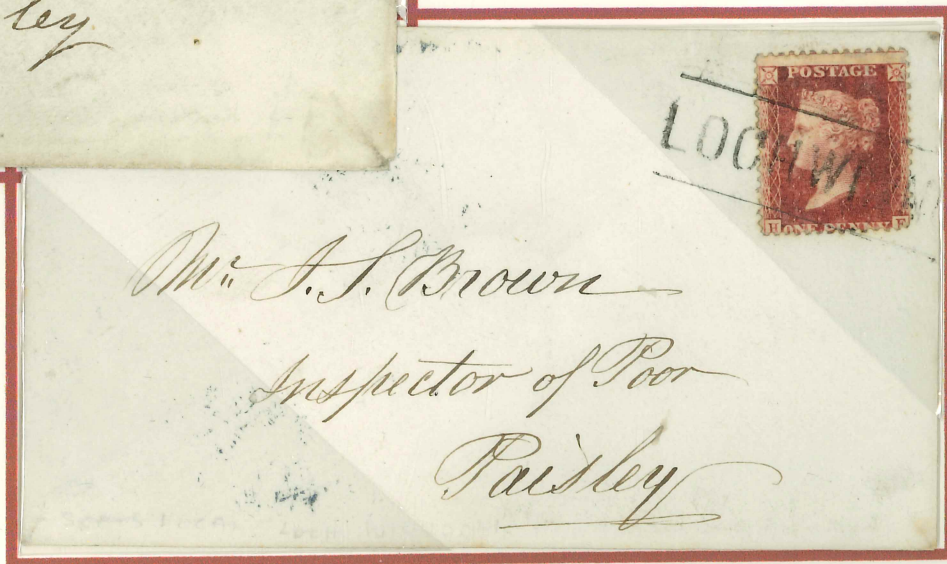 ley
POSTAGE
LOCHWI
H ONE PENNY F
Mr. J. S. Brown
Inspector of Poor
Paisley